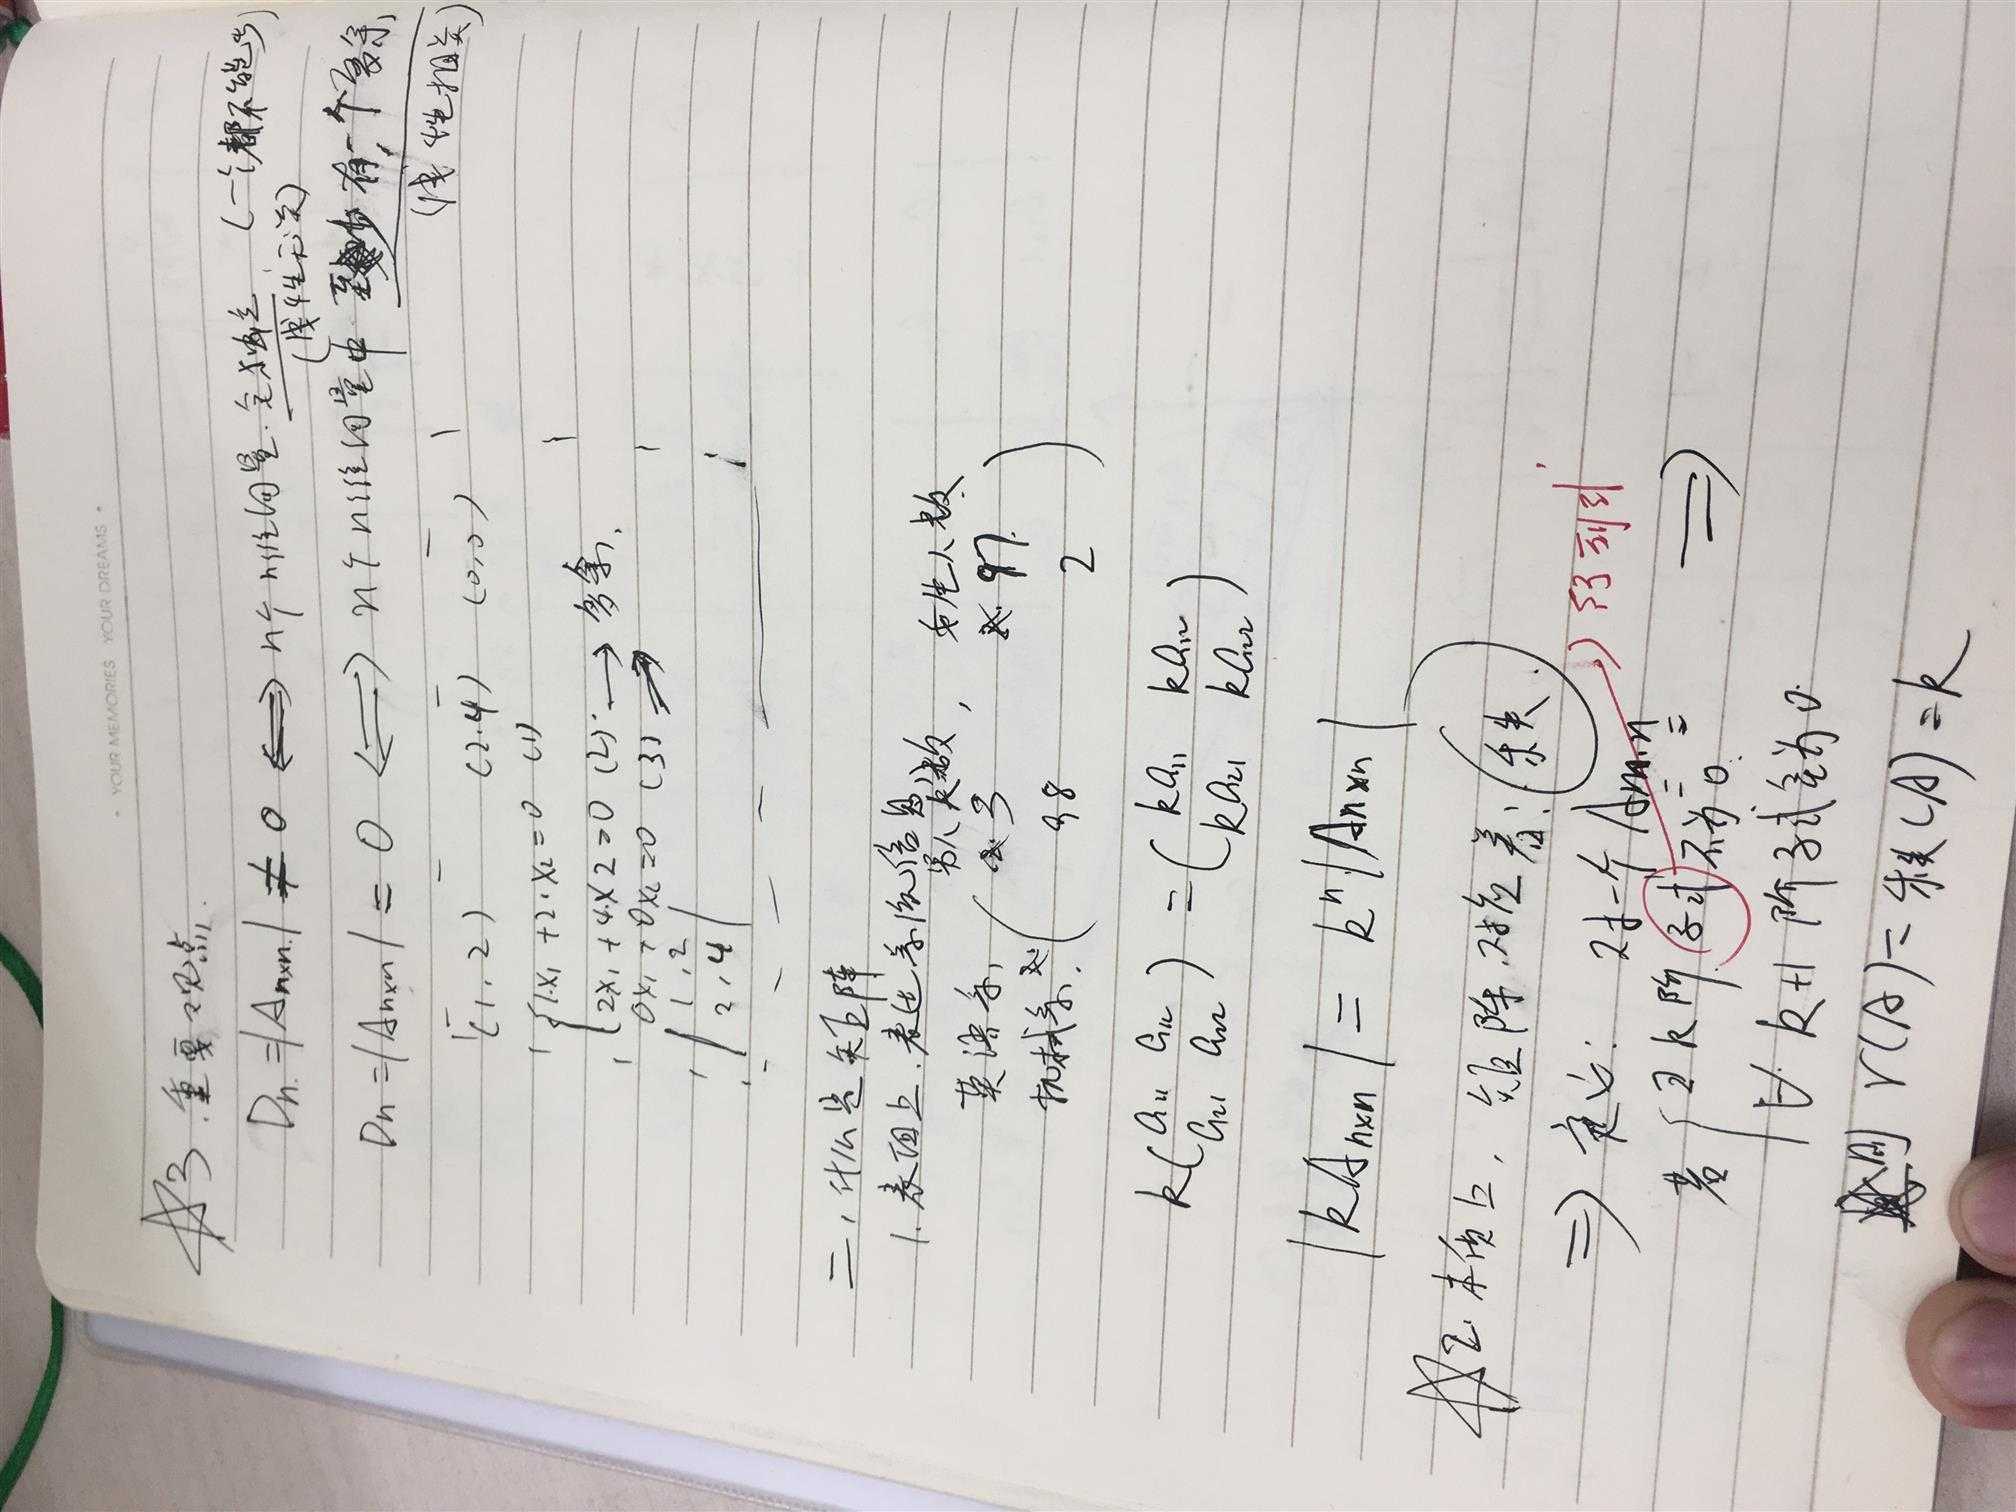 • YOUR MEMORIES YOUR DREAMS •
3. 重要观点.
Dn = |An×n| ≠ 0 ⟺ n个n维向量.完全独立 (一个都不能少)
(线性无关)
Dn = |An×n| = 0 ⟺ n个n维向量中 至少有一个多余,
(线性相关)
(1, 2) (2.4) (0,0)
{1·x1+2·x2=0 (1)
2x1+4x2=0 (2) → 多余,
0x1+0x2=0 (3) →
|1, 2
2, 4|
二, 什么是矩阵
1. 表面上. 表达系统信息
男人数, 女生人数
英语系, ( 3 97
机械系. 98 2 )
k(a11 a12 a21 a22) = (ka11 ka12 ka21 ka22)
|kAn×n| = kⁿ|An×n|
2. 本质上, 矩阵.对应着: (秩)
⇒ 定义: 对一个 Am×n ⇒ 行列式
若 { ∃ k阶 子式 不为0. ⇒
∀ k+1 阶子式全为0.
则 r(A) = 秩(A) = k